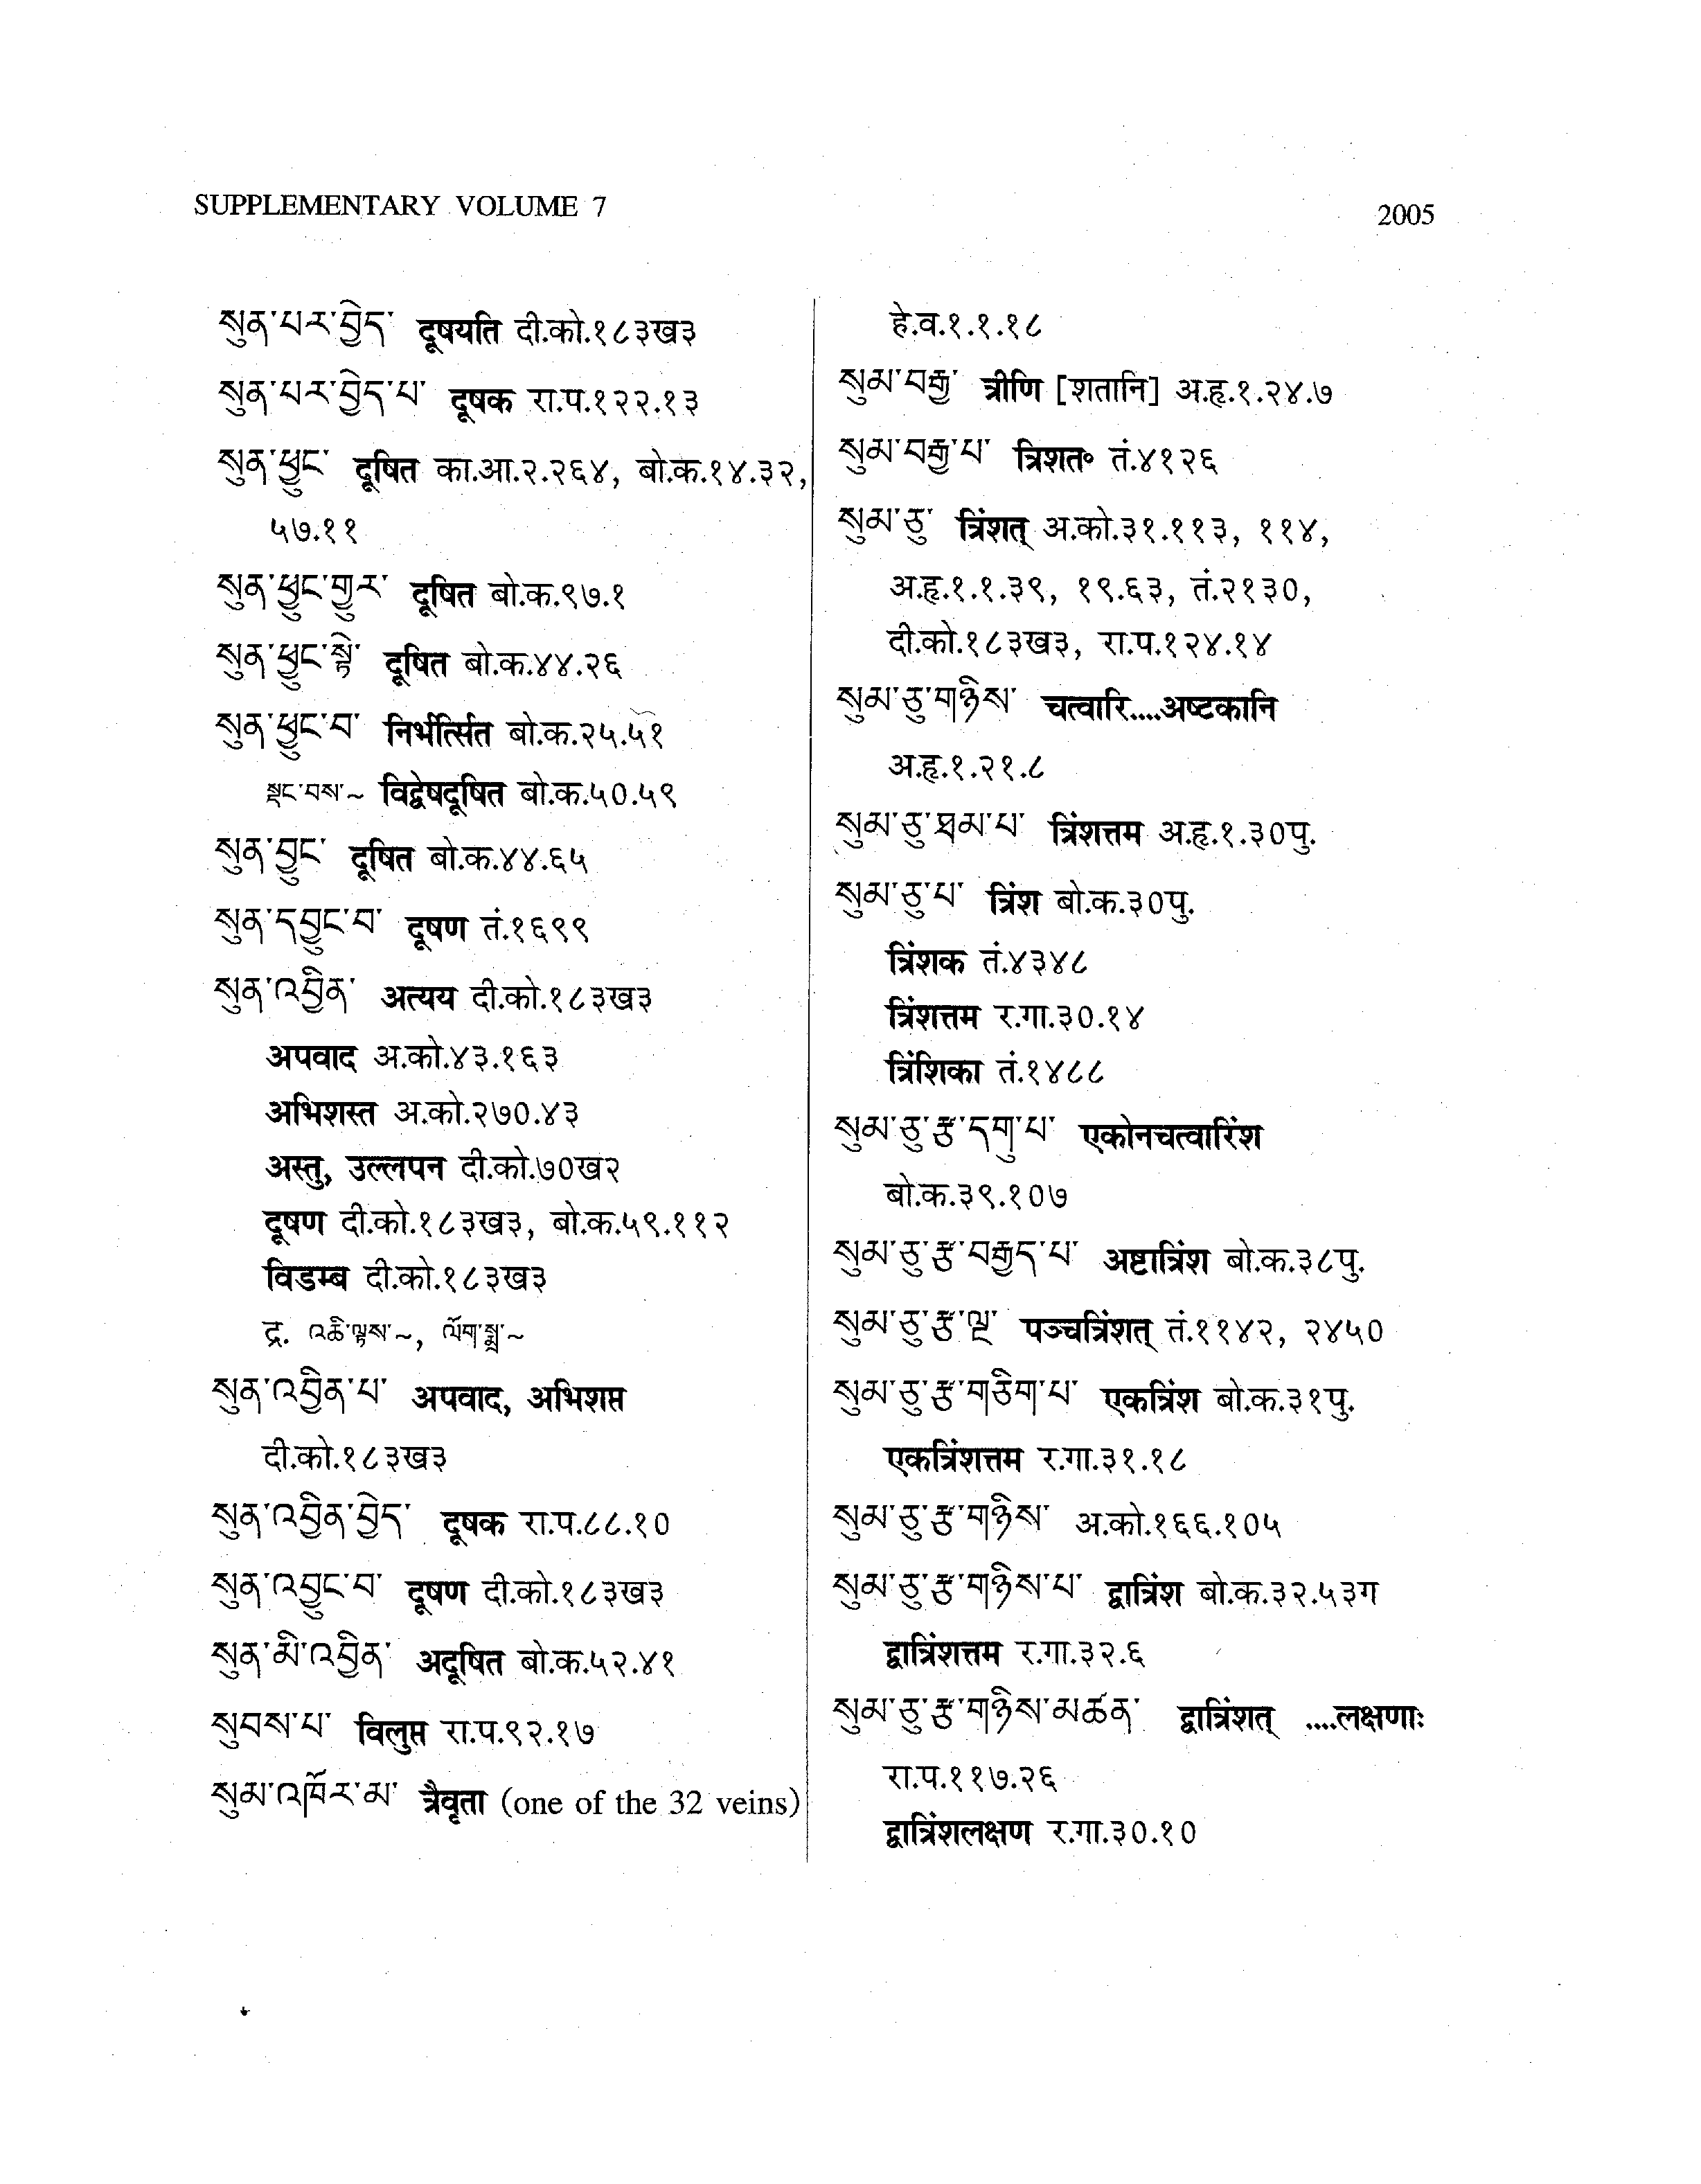 SUPPLEMENTARY VOLUME 7
2005
སུན་པར་བྱེད་ दूषयति दी.को.१८३ख३
སུན་པར་བྱེད་པ་ दूषक रा.प.१२२.१३
སུན་ཕྱུང་ दूषित का.आ.२.२६४, बो.क.१४.३२,
५७.११
སུན་ཕྱུང་གྱུར་ दूषित बो.क.९७.१
སུན་ཕྱུང་སྟེ་ दूषित बो.क.४४.२६
སུན་ཕྱུང་བ་ निर्भर्त्सित बो.क.२५.५१
སྡང་བས་~ विद्वेषदूषित बो.क.५०.५९
སུན་བྱུང་ दूषित बो.क.४४.६५
སུན་དབྱུང་བ་ दूषण तं.१६९९
སུན་འབྱིན་ अत्यय दी.को.१८३ख३
अपवाद अ.को.४३.१६३
अभिशस्त अ.को.२७०.४३
अस्तु, उल्लपन दी.को.७०ख२
दूषण दी.को.१८३ख३, बो.क.५९.११२
विडम्ब दी.को.१८३ख३
द्र. འཆི་ལྟས་~, ལོག་སྨྲ་~
སུན་འབྱིན་པ་ अपवाद, अभिशप्त
दी.को.१८३ख३
སུན་འབྱིན་བྱེད་ दूषक रा.प.८८.१०
སུན་འབྱུང་བ་ दूषण दी.को.१८३ख३
སུན་མི་འབྱིན་ अदूषित बो.क.५२.४१
སུབས་པ་ विलुप्त रा.प.९२.१७
སུམ་འཁོར་མ་ त्रैवृता (one of the 32 veins)
हे.व.१.१.१८
སུམ་བརྒྱ་ त्रीणि [शतानि] अ.हृ.१.२४.७
སུམ་བརྒྱ་པ་ त्रिशत॰ तं.४१२६
སུམ་ཅུ་ त्रिंशत् अ.को.३१.११३, ११४,
अ.हृ.१.१.३९, १९.६३, तं.२१३०,
दी.को.१८३ख३, रा.प.१२४.१४
སུམ་ཅུ་གཉིས་ चत्वारि....अष्टकानि
अ.हृ.१.२१.८
སུམ་ཅུ་ཐམ་པ་ त्रिंशत्तम अ.हृ.१.३०पु.
སུམ་ཅུ་པ་ त्रिंश बो.क.३०पु.
त्रिंशक तं.४३४८
त्रिंशत्तम र.गा.३०.१४
त्रिंशिका तं.१४८८
སུམ་ཅུ་རྩ་དགུ་པ་ एकोनचत्वारिंश
बो.क.३९.१०७
སུམ་ཅུ་རྩ་བརྒྱད་པ་ अष्टात्रिंश बो.क.३८पु.
སུམ་ཅུ་རྩ་ལྔ་ पञ्चत्रिंशत् तं.११४२, २४५०
སུམ་ཅུ་རྩ་གཅིག་པ་ एकत्रिंश बो.क.३१पु.
एकत्रिंशत्तम र.गा.३१.१८
སུམ་ཅུ་རྩ་གཉིས་ अ.को.१६६.१०५
སུམ་ཅུ་རྩ་གཉིས་པ་ द्वात्रिंश बो.क.३२.५३ग
द्वात्रिंशत्तम र.गा.३२.६
སུམ་ཅུ་རྩ་གཉིས་མཚན་ द्वात्रिंशत् ....लक्षणाः
रा.प.११७.२६
द्वात्रिंशलक्षण र.गा.३०.१०